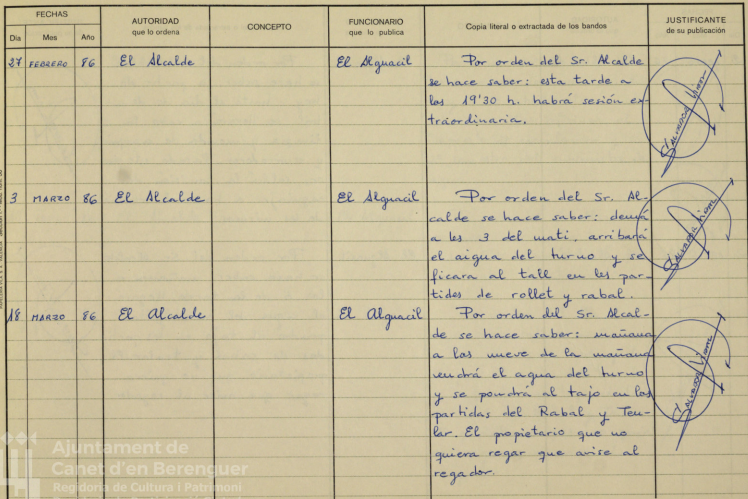 FECHAS
Día Mes Año
AUTORIDAD
que lo ordena
CONCEPTO
FUNCIONARIO
que lo publica
Copia literal o extractada de los bandos
JUSTIFICANTE
de su publicación
27 FEBRERO 86 El Alcalde El Alguacil Por orden del Sr. Alcalde
se hace saber: esta tarde a
las 19'30 h. habrá sesión ex-
traordinaria.
3 MARZO 86 El Alcalde El Alguacil Por orden del Sr. Al-
calde se hace saber: demá
a les 3 del matí, arribará
el aigua del turno y se
ficara al tall en les par-
tides de rollet y rabal.
18 MARZO 86 El Alcalde El Alguacil Por orden del Sr. Alcal-
de se hace saber: mañana
a las nueve de la mañana
vendrá el agua del turno
y se pondrá al tajo en las
partidas del Rabal y Teu-
lar. El propietario que no
quiera regar que avise al
regador.
Ajuntament de
Canet d'en Berenguer
Regidoria de Cultura i Patrimoni